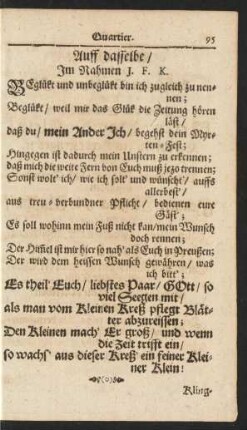 Quartier. 95
Auff dasselbe /
Im Nahmen J. F. K.
BEglükt und unbeglükt bin ich zugleich zu nen-
nen;
Beglükt / weil mir das Glük die Zeitung hören
läst /
daß du / mein Ander Ich / begehst dein Myr-
ten-Fest;
Hingegen ist dadurch mein Unstern zu erkennen;
daß mich die weite Fern von Euch muß jezo trennen;
Sonst wolt' ich / wie ich solt' und wünscht' / auffs
allerbest' /
aus treu-verbundner Pflicht / bedienen eure
Gäst';
Es soll wohinn mein Fuß nicht kan / mein Wunsch
doch rennen;
Der Himmel ist mir hier so nah' als Euch in Preußen;
Der wird dem heissen Wunsch gewähren / was
ich bitt';
Es theil' Euch / liebstes Paar / GOtt / so
viel Seegen mit /
als man vom Kleinen Kreß pflegt Blät-
ter abzureissen;
Den Kleinen mach' Er groß / und wenn
die Zeit trifft ein /
so wachs' aus dieser Kreß' ein feiner Klei-
ner Klein!
Kling-